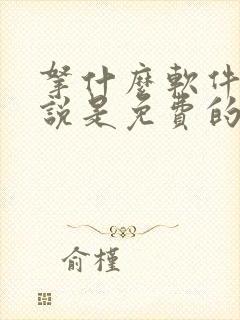 拏什麼軟件
說是免費的
俞槿